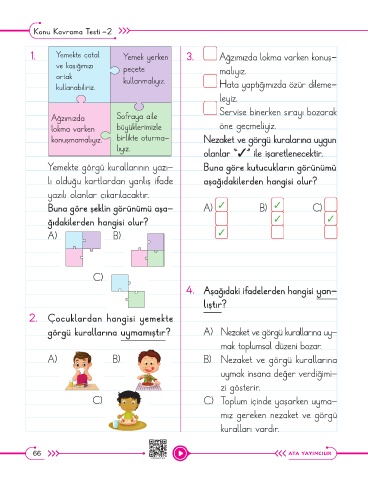 Konu Kavrama Testi -2
1.
Yemekte çatal
ve kaşığımızı
ortak
kullanabiliriz.
Yemek yerken
peçete
kullanmalıyız.
Ağzımızda
lokma varken
konuşmamalıyız.
Sofraya aile
büyüklerimizle
birlikte oturma-
lıyız.
Yemekte görgü kurallarının yazı-
lı olduğu kartlardan yanlış ifade
yazılı olanlar çıkarılacaktır.
Buna göre şeklin görünümü aşa-
ğıdakilerden hangisi olur?
A) B)
C)
2. Çocuklardan hangisi yemekte
görgü kurallarına uymamıştır?
A) B)
C)
3. Ağzımızda lokma varken konuş-
malıyız.
Hata yaptığımızda özür dileme-
liyiz.
Servise binerken sırayı bozarak
öne geçmeliyiz.
Nezaket ve görgü kurallarına uygun
olanlar "✓" ile işaretlenecektir.
Buna göre kutucukların görünümü
aşağıdakilerden hangisi olur?
A) ✓ B) ✓ C)
✓ ✓
✓
4. Aşağıdaki ifadelerden hangisi yan-
lıştır?
A) Nezaket ve görgü kurallarına uy-
mak toplumsal düzeni bozar.
B) Nezaket ve görgü kurallarına
uymak insana değer verdiğimi-
zi gösterir.
C) Toplum içinde yaşarken uyma-
mız gereken nezaket ve görgü
kuralları vardır.
66
ATA YAYINCILIK